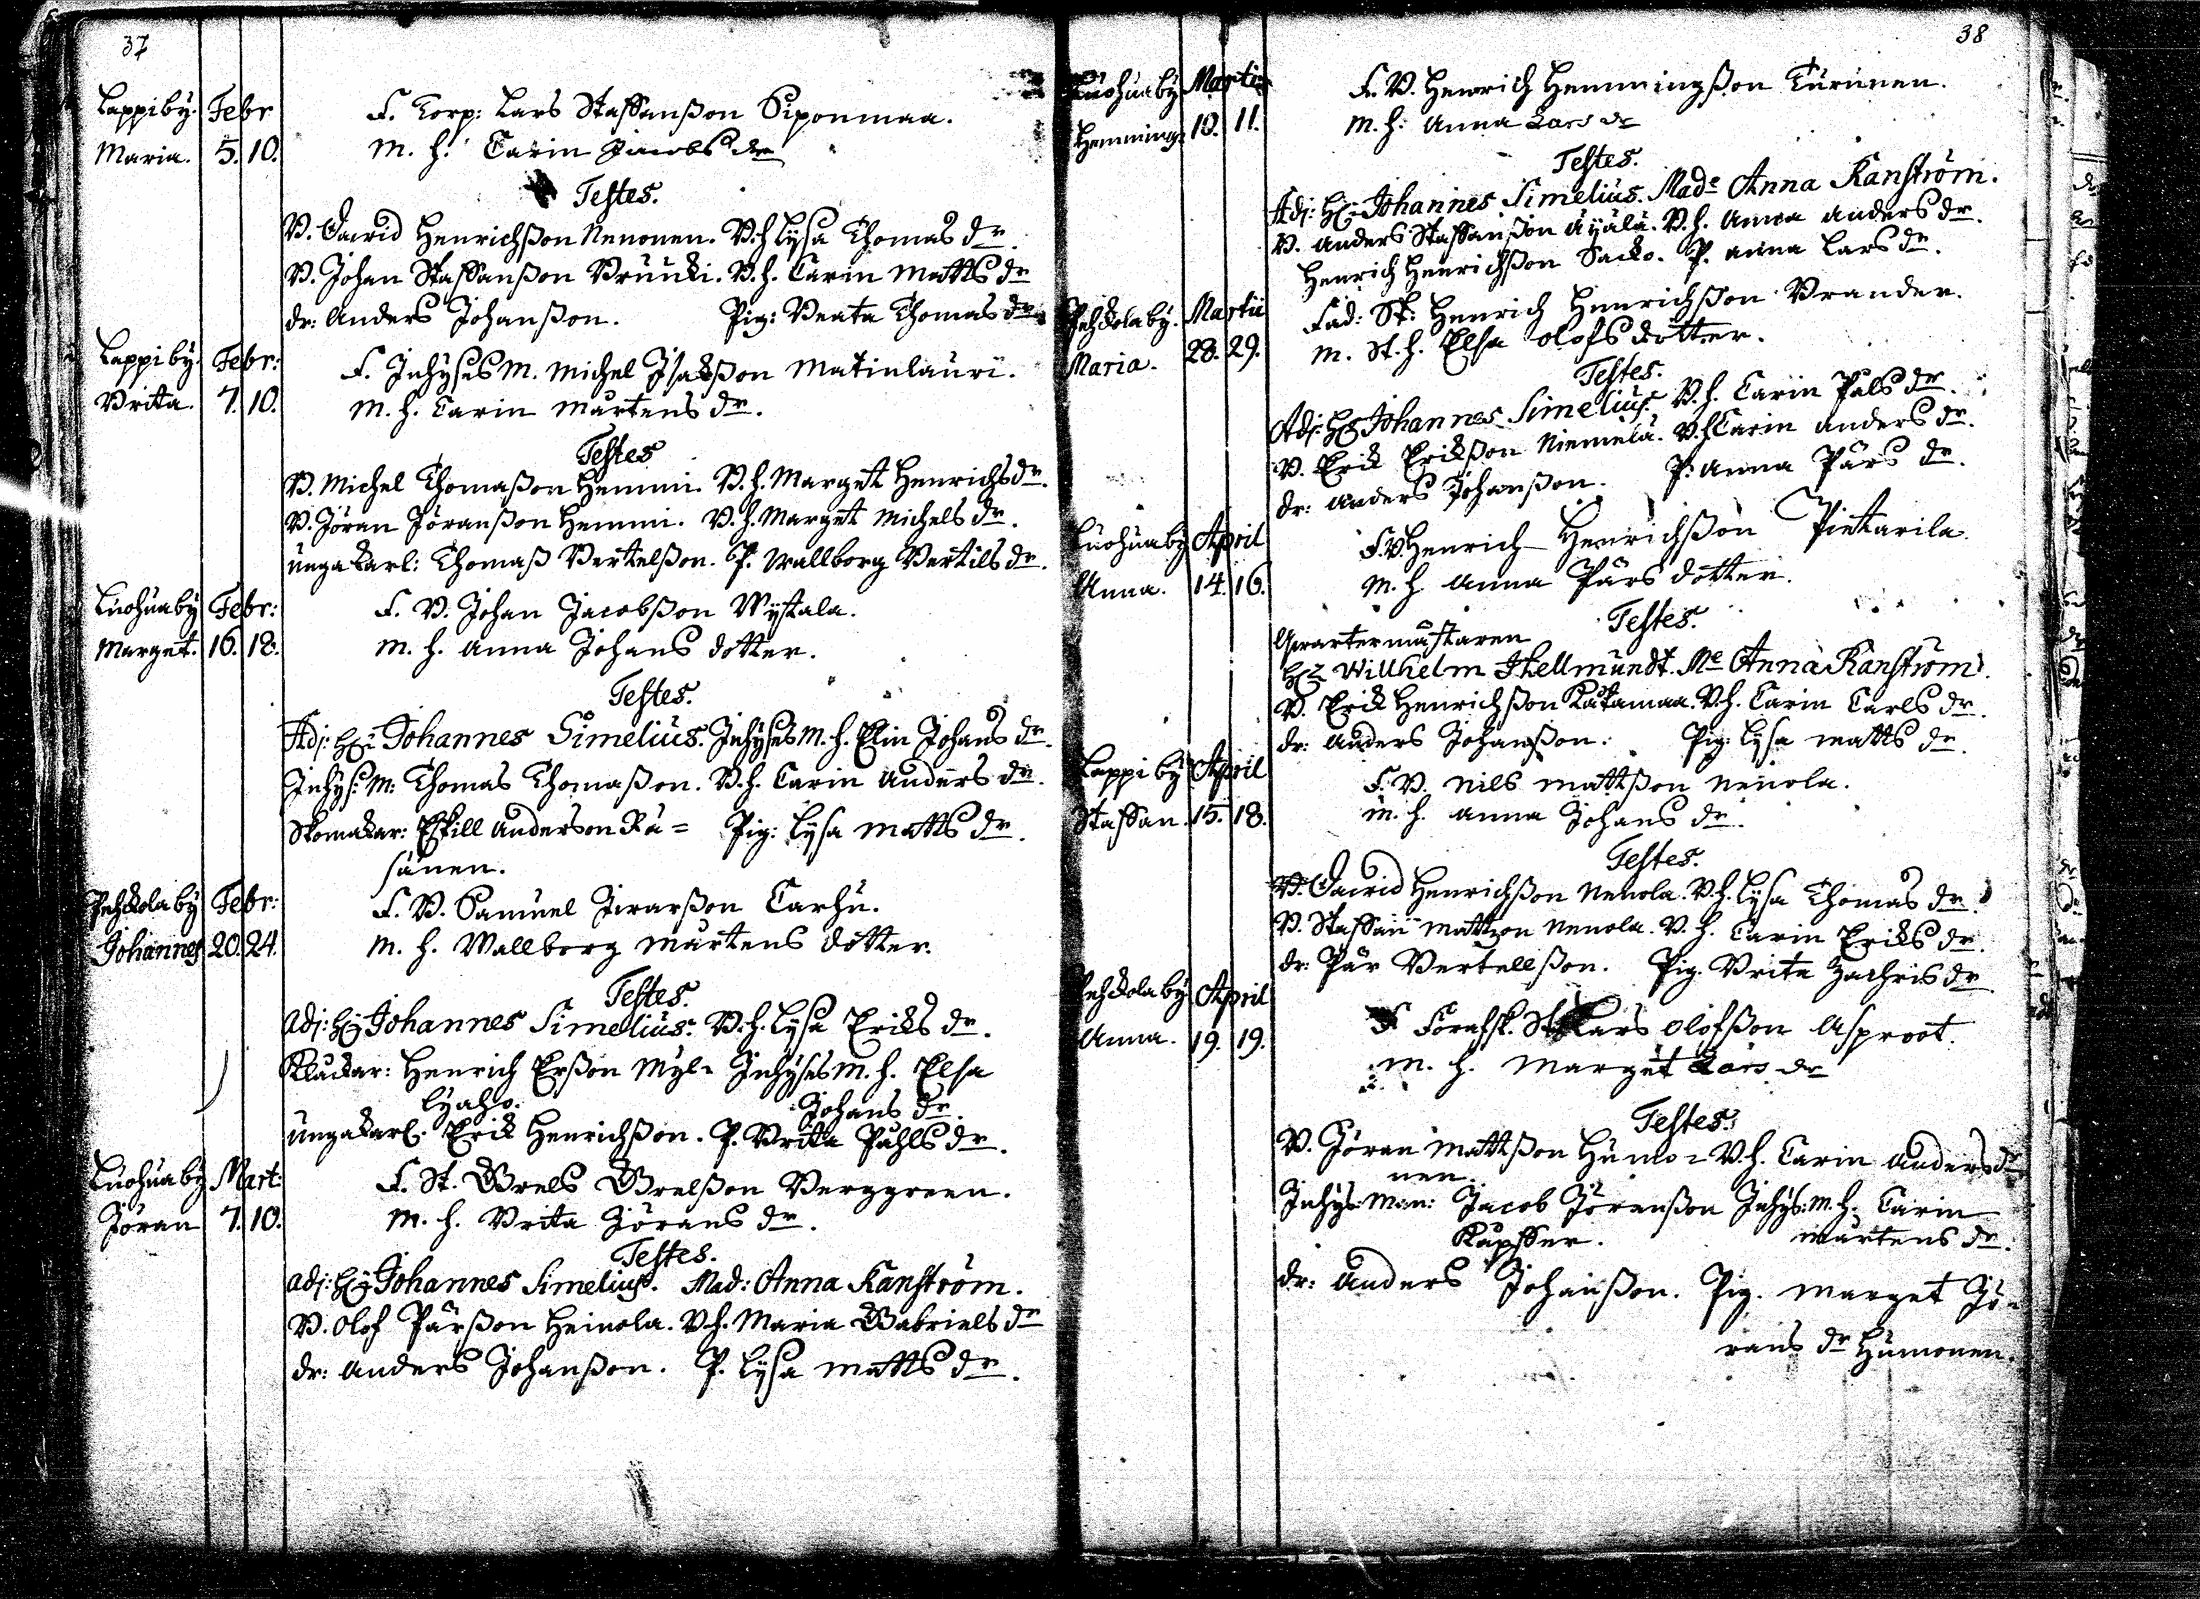 37
Lappiby. Febr F. Corp: Lars Staffansson Siponmaa.
Maria. 5. 10. M. H. Carin Jacobs dr
Testes.
B. David Henrichsson Nenonen. B.H Lysa Thomas dr.
B. Johan Staffansson Bruuki. B. H. Carin Matts dr
dr: Anders Johansson. Pig: Beata Thomas dr
Lappiby. Febr: F. Inhyses M. Michel Isaksson Matinlauri.
Brita. 7. 10. M. H. Carin Mårtens dr.
Testes
B. Michel Thomasson Hemmi. B. H. Marget Henrichs dr.
B. Jöran Jöransson Hemmi. B. H. Marget Michels dr.
unga karl: Thomas Bertelsson. P. Wallborg Bertils dr.
Luohuaby Febr: F. B. Johan Jacobsson
Marget. 16. 18. M. H. Anna Johans dotter.
Testes.
Adj: Hr: Johannes Simelius. Inhyses M. H. Elin Johans dr.
Inhys: M: Thomas Thomasson. B. H. Carin Anders dr.
Skomakar: Eskill Anderson Rä= Pig: Lysa Matts dr.
sänen.
Pehkolaby Febr: F. B. Samuel Karhu.
Johannes 20. 24. M. H. Wallborg Mårtens dotter.
Testes.
Adj: Hr Johannes Simelius. B. H. Lysa Eriks dr.
Kluckar: Henrich Ersson Myl= Inhyses M. H. Elsa
lyaho. Johans dr.
unga karl. Erik Henrichsson. P. Brita Påhls dr.
Luohuaby Mart: F. St. Grels Grelsson Berggreen.
Jöran 7. 10. M. H. Brita Jörans dr.
Testes.
Adj: Hr Johannes Simelius. Mad: Anna Kanström.
B. Olof Pärsson Heinola. B.H. Maria Gabriels dr
dr: Anders Johansson. P. Lysa Matts dr.
38
Luohuaby Martii F. B. Henrich Hemmingsson Turunen.
Hemming 10. 11. M. H. Anna Lars dr
Testes.
Adj: Hr: Johannes Simelius. Made Anna Kanström.
B. Anders Staffansson Äyälä. B. H. Anna Anders dr.
Henrich Henrichsson Sacko. P. Anna Lars dr.
Pehkolaby. Martii Fad: St: Henrich Henrichsson Brander.
Maria. 28. 29. M. St. H. Elsa Olofs dotter.
Testes.
Adj: Hr Johannes Simelius. B. H. Carin Påls dr.
B. Erik Eriksson Niemelä. B.H Carin Anders dr.
dr: Anders Johansson. P: Anna Pärs dr.
Luohuaby April F. B. Henrich Henrichsson Pietarila
Anna. 14. 16. M. H. Anna Pärs dotter.
Testes.
Qwartermästaren
Hr Wilhelm Hellmundt. Me Anna Kanström.
B. Erik Henrichsson Katamaa. B.H. Carin Carls dr.
dr: Anders Johansson. Pig: Lysa Matts dr.
Lappi by April F. B. Nils Mattsson Nenola.
Staffan. 15. 18. M. H. Anna Johans dr.
Testes.
B. David Henrichsson Nenola. B.H. Lysa Thomas dr.
B. Staffan Mattzon Nenola. B. H. Carin Eriks dr.
dr: Pär Bertellsson. Pig. Brita Zachris dr
Pehkolaby April F St Lars Olofsson Asproot.
Anna. 19. 19. M. H. Marget Lars dr
Testes.
B. Jöran Mattsson Humo= B.H. Carin Anders dr
nen.
Inhys: Man: Jacob Jöransson Inhys: M. H. Carin
Mårtens dr.
dr: Anders Johansson. Pig. Marget Jö=
rans dr Humonen.